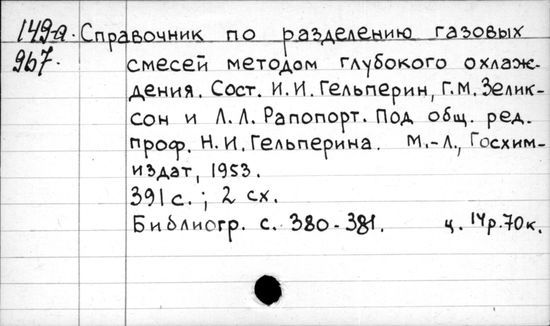 149а. Справочник по разделению газовых
967. смесей методом глубокого охлаж-
дения. Сост. И.И. Гельперин, Г.М. Зелик-
сон и Л.Л. Рапопорт. Под общ. ред.
проф. Н.И. Гельперина. М.-Л., Госхим-
издат, 1953.
391 с. ; 2 сх.
Библиогр. с. 380-381. ц. 14р.70к.